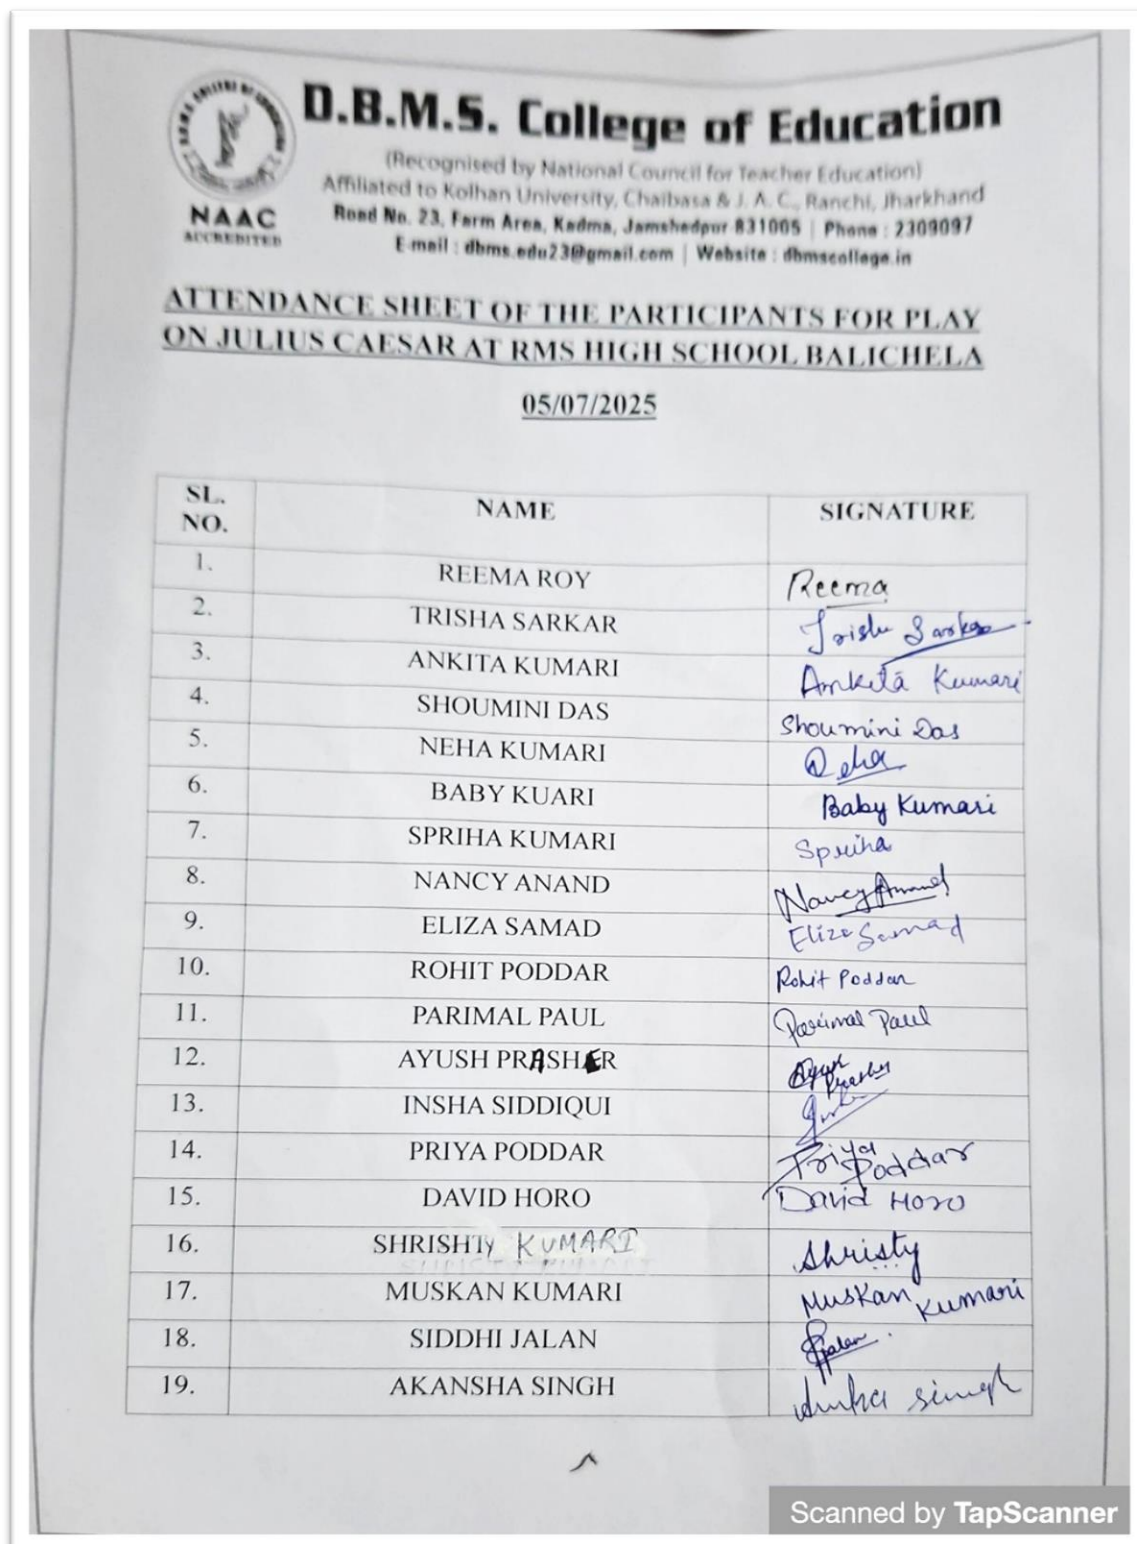 D.B.M.S. College of Education
(Recognised by National Council for Teacher Education)
Affiliated to Kolhan University, Chaibasa & J. A. C., Ranchi, Jharkhand
Road No. 23, Farm Area, Kadma, Jamshedpur-831005 | Phone : 2309097
E-mail : dbms.edu23@gmail.com | Website : dbmscollege.in
NAAC
ACCREDITED
ATTENDANCE SHEET OF THE PARTICIPANTS FOR PLAY
ON JULIUS CAESAR AT RMS HIGH SCHOOL BALICHELA
05/07/2025
SL. NO. NAME SIGNATURE
1. REEMA ROY Reema
2. TRISHA SARKAR Trisha Sarkar
3. ANKITA KUMARI Ankita Kumari
4. SHOUMINI DAS Shoumini Das
5. NEHA KUMARI Neha
6. BABY KUARI Baby Kumari
7. SPRIHA KUMARI Spriha
8. NANCY ANAND Nancy Anand
9. ELIZA SAMAD Eliza Samad
10. ROHIT PODDAR Rohit Poddar
11. PARIMAL PAUL Parimal Paul
12. AYUSH PRASHER
13. INSHA SIDDIQUI
14. PRIYA PODDAR Priya Poddar
15. DAVID HORO David HORO
16. SHRISHTy KUMARI Shristy
17. MUSKAN KUMARI Muskan Kumari
18. SIDDHI JALAN
19. AKANSHA SINGH singh
Scanned by TapScanner